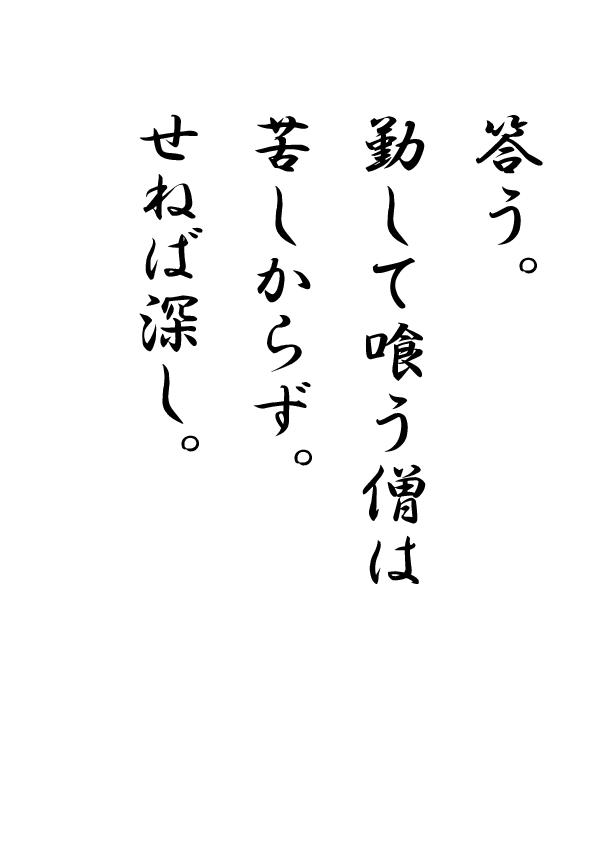 答う。
勤して喰う僧は
苦しからず。
せねば深し。